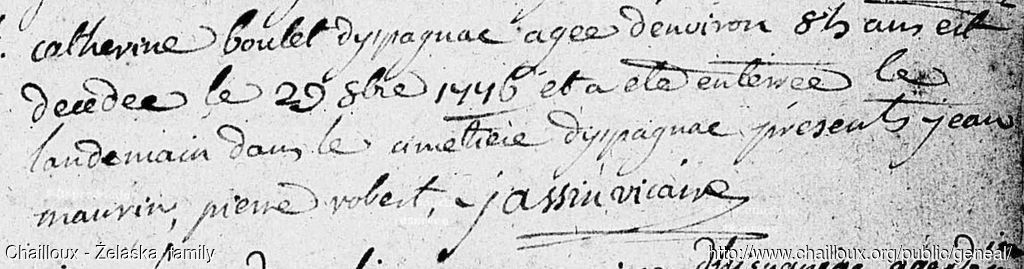 catherine boulet dyspagnac agée denviron 85 ans est
decedee le 29 8bre 1776 et a été enterrée le
landemain dans le cimetiere dyspagnac présents jean
maurin, pierre robert, jassin vicaire
Chailloux - Żelaska family
http://www.chailloux.org/public/geneal/